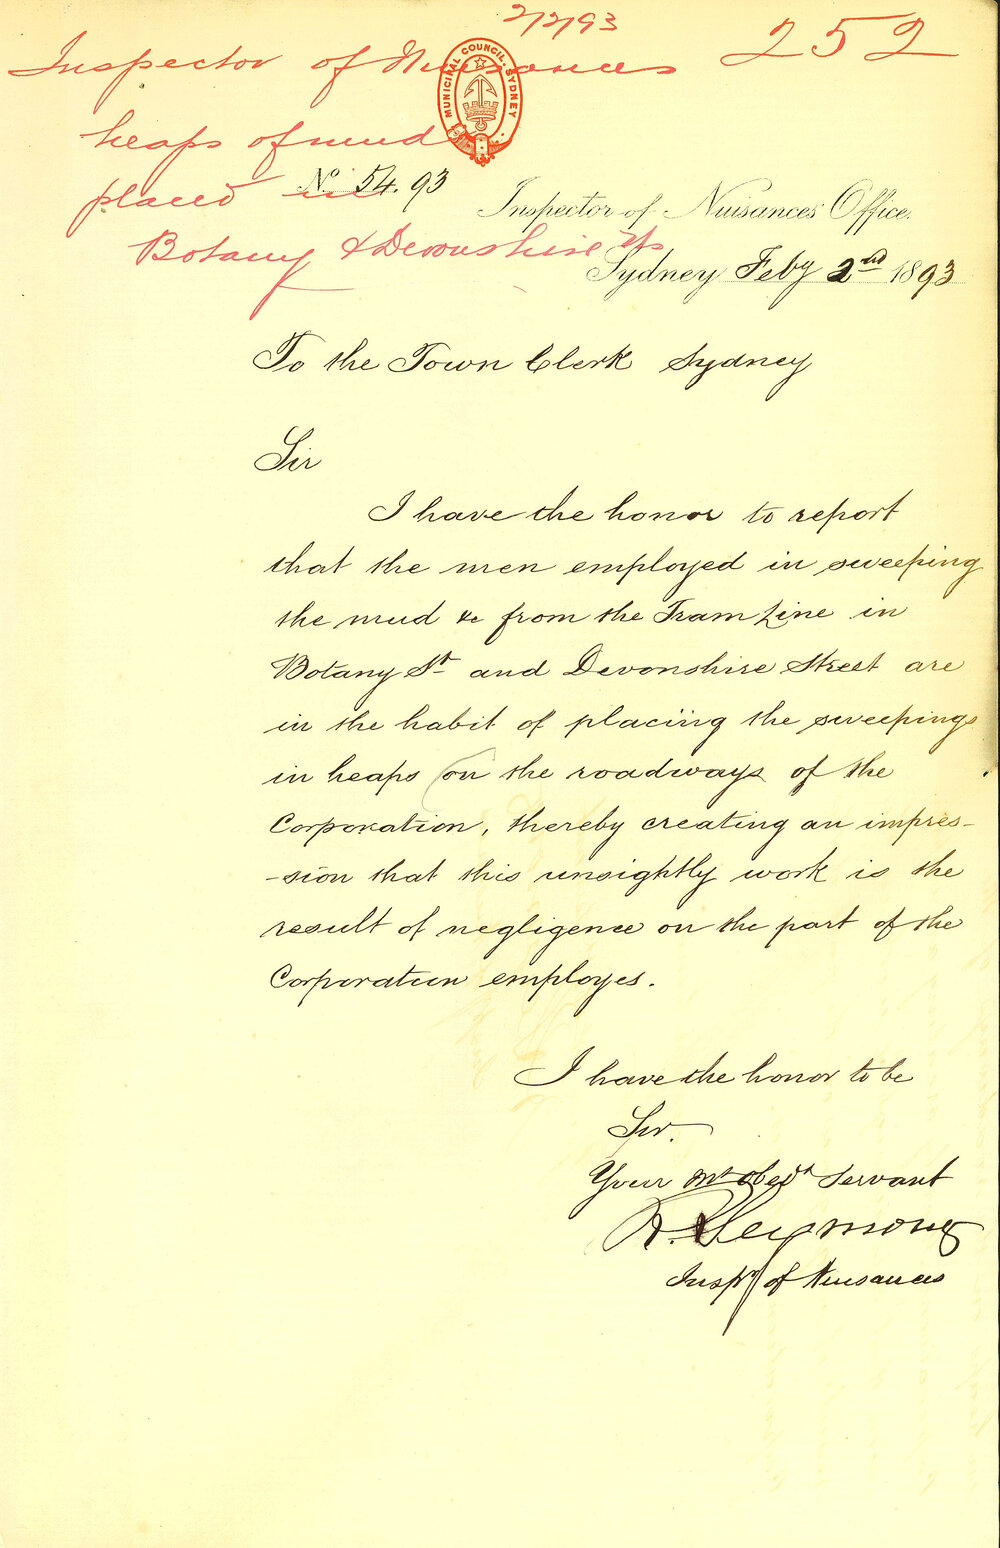 2/2/93
252
Inspector of Nuisances
heaps of mud
placed in
Botany & Devonshire Sts
MUNICIPAL COUNCIL. SYDNEY
No. 54.93
Inspector of Nuisances Office.
Sydney Feby 2nd 1893
To the Town Clerk Sydney
Sir
I have the honor to report
that the men employed in sweeping
the mud &c from the Tram Line in
Botany St and Devonshire Street are
in the habit of placing the sweepings
in heaps on the roadways of the
Corporation, thereby creating an impres-
-sion that this unsightly work is the
result of negligence on the part of the
Corporation employes.
I have the honor to be
Sir.
Your Mt Obedt Servant
R. Seymour
Inspr of Nuisances